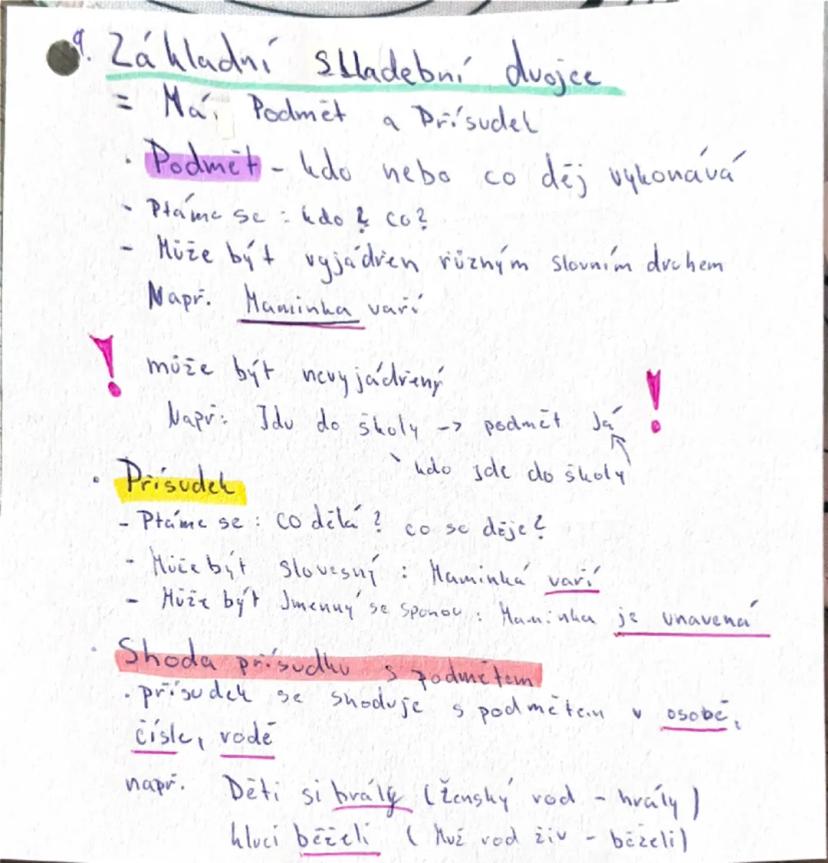 9. Základní skladební dvojce
= Má, Podmět a Přísudek
· Podmět - kdo nebo co děj vykonává
- Ptáme se : kdo? co?
- Může být vyjádřen různým slovním druhem
Např. Maminka vaří
! může být nevyjádřený !
Např: Jdu do školy -> podmět Já
kdo jde do školy
· Přísudek
- Ptáme se : co dělá? co se děje?
- Může být slovesný : Maminka vaří
- Může být Jmenný se sponou : Maminka je unavená
· Shoda přísudku s podmětem
· přísudek se shoduje s podmětem v osobě,
čísle, rodě
např. Děti si hrály (Ženský rod - hrály)
kluci běželi (Muž rod živ - běželi)